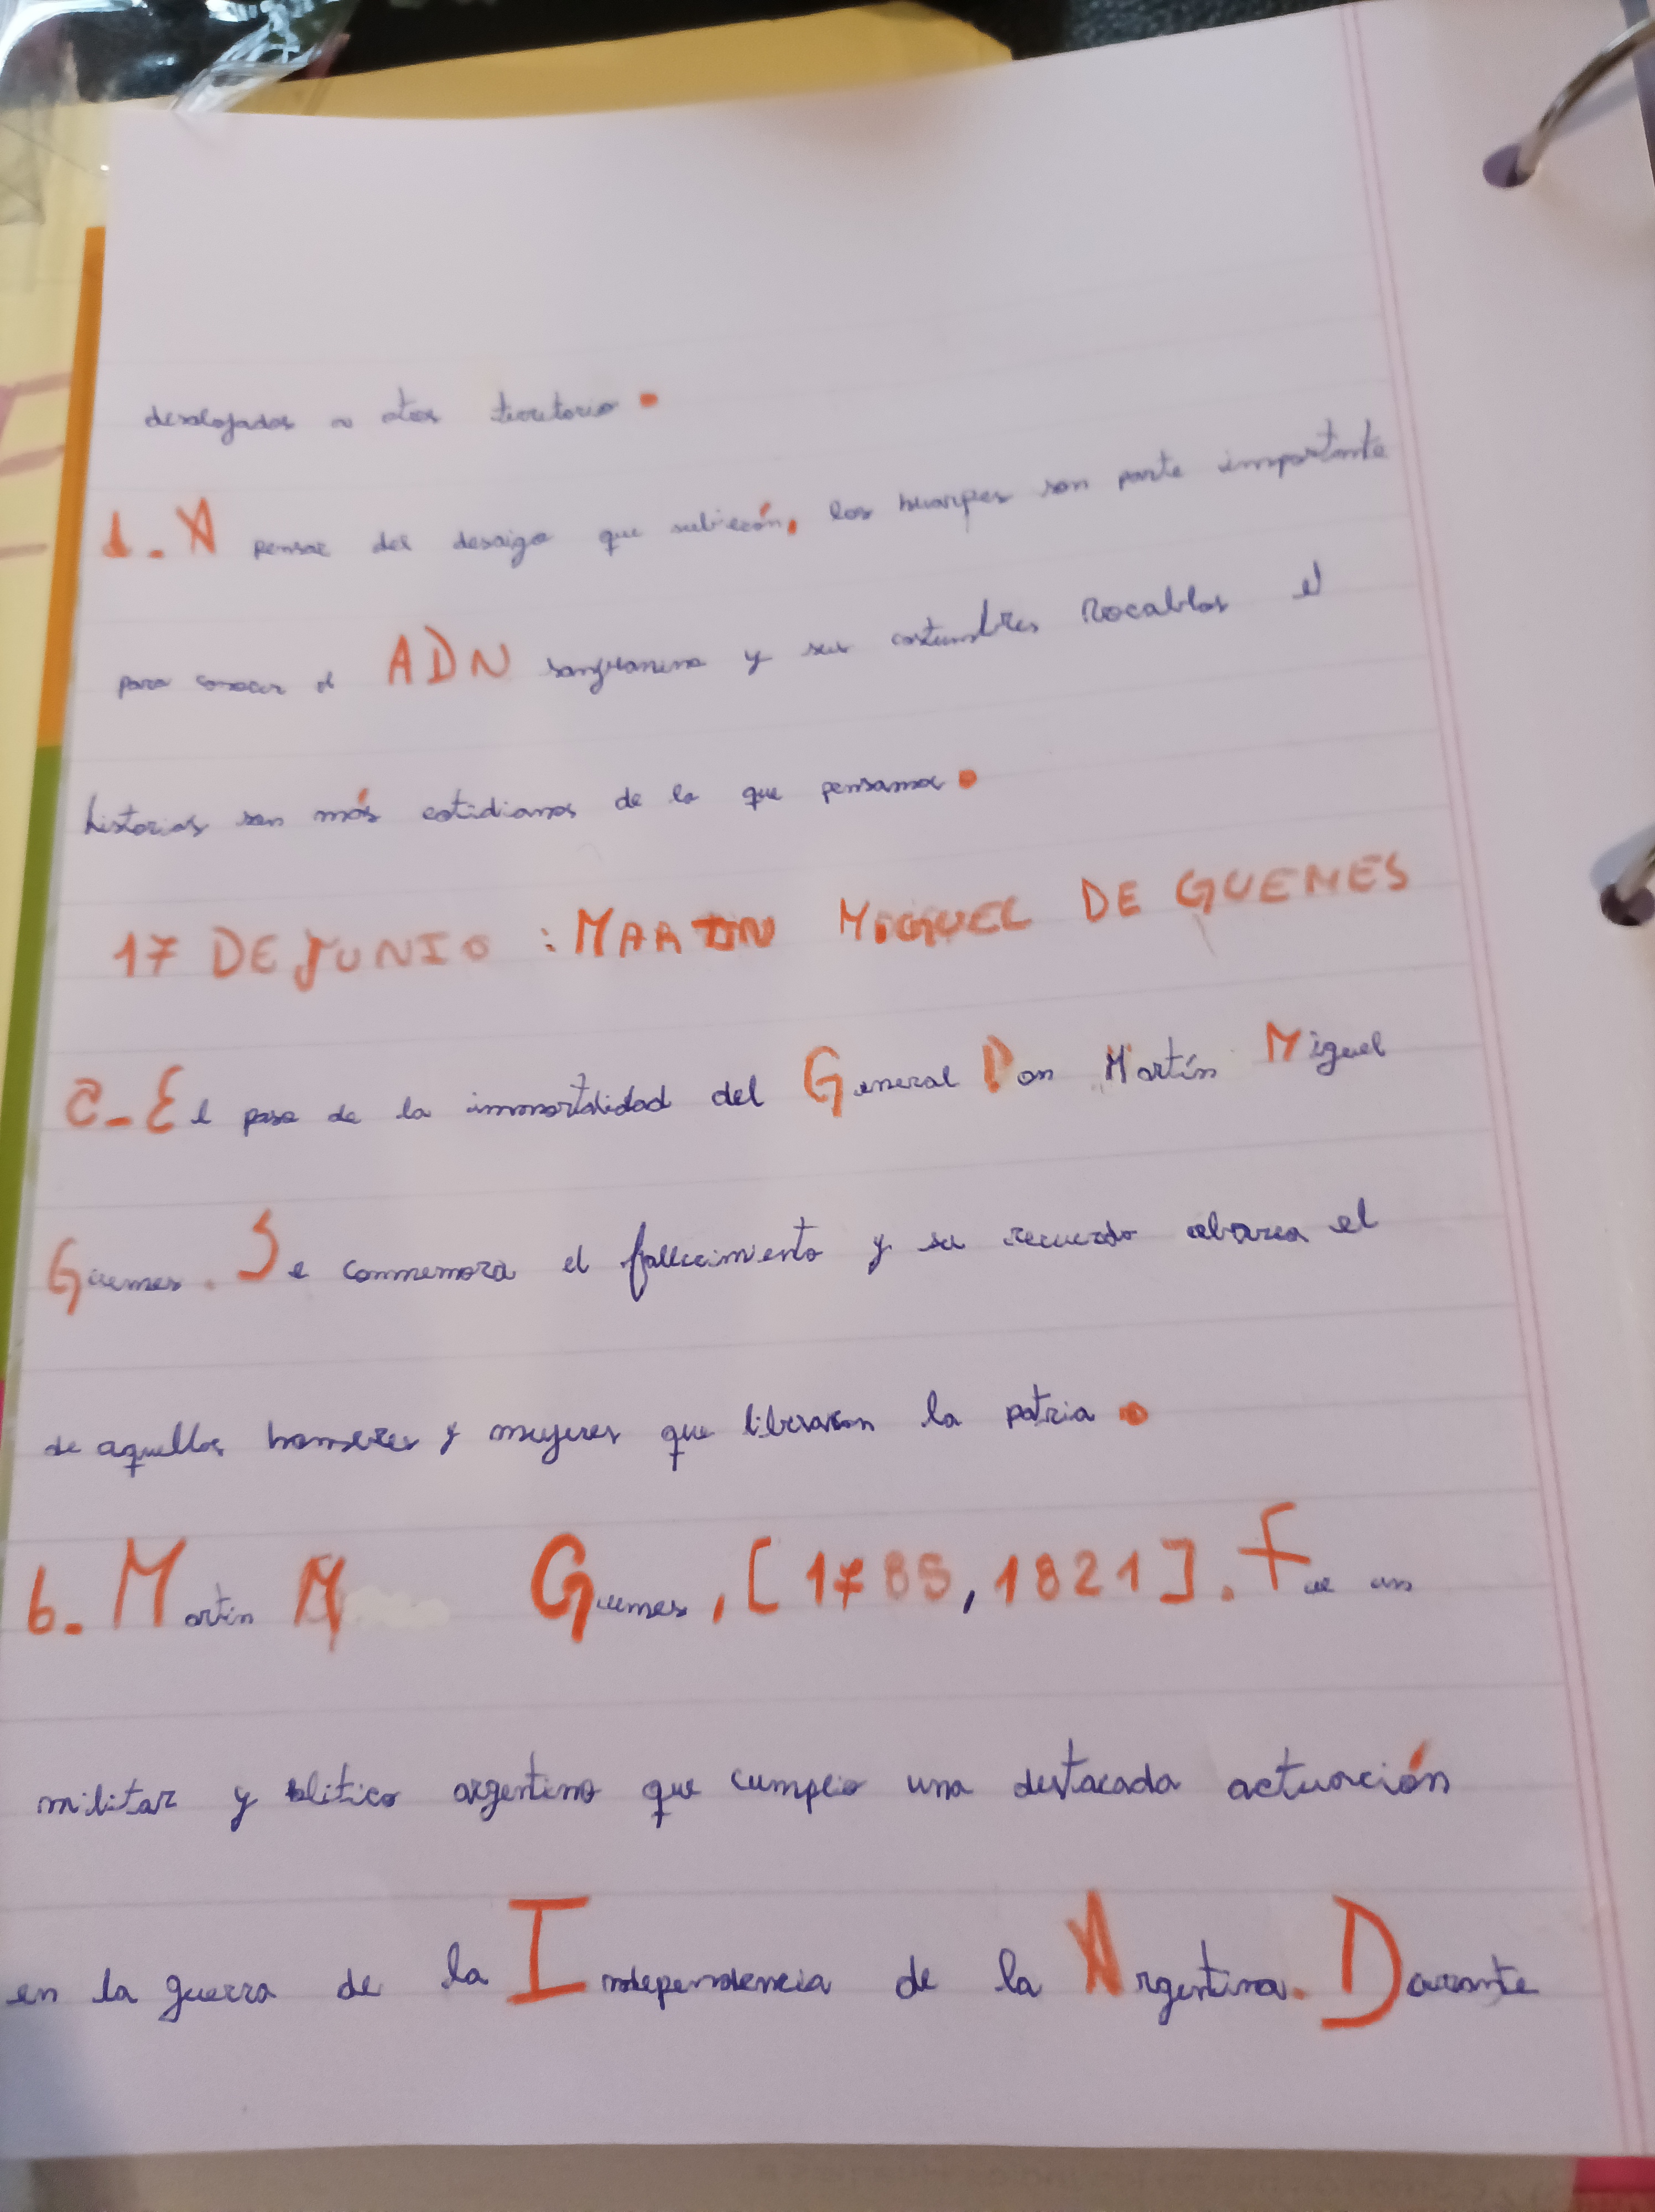 desalojados a otos territorio.
d. A pensar del desaigo que subierón, los huarpes son parte importante
para conocer el ADN sanjuanino y sus costumbres Vocablos e
historias son más cotidianas de lo que pensamos.
17 DE JUNIO : MARTIN MIGUEL DE GUEMES
a- El paso de la inmortalidad del General Don Martín Miguel
Guemes. Se conmemora el fallecimiento y su recuerdo abarca el
de aquellos hombres y mujeres que liberaron la patria.
b. Martin M Guemes, [1785, 1821]. Fue un
militar y politico argentino que cumplio una destacada actuación
en la guerra de la Independencia de la Argentina. Durante